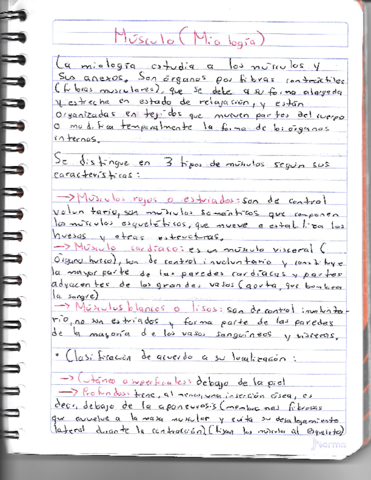 Músculo (Miología)
La miología estudia a los músculos y
sus anexos. Son órganos por fibras contráctiles
(fibras musculares), que se debe a su forma alargada
y estrecha en estado de relajación, y están
organizadas en tejidos que mueven partes del cuerpo
o modifica temporalmente la forma de los órganos
internos.
Se distingue en 3 tipos de músulos según sus
características:
→ Músculos rojos o estriados: son de control
voluntario, son músculos somáticos, que componen
los músculos esqueléticos, que mueve o estabiliza los
huesos y otras estructuras.
→ Músculo cardíaco: es un músculo visceral (
órgano hueco), son de control involuntario y constituye
la mayor parte de las paredes cardíacas y partes
adyacentes de los grandes vasos (aorta, que bombea
la sangre)
→ Músculos blancos o lisos: son de control involunta-
rio, no son estriados y forma parte de las paredes
de la mayoría de los vasos sanguíneos y vísceras.
• Clasificación de acuerdo a su localización:
→ Cutáneo o superficiales: debajo de la piel
→ Profundos: tiene, al menos, una inserción ósea, es
decir, debajo de la aponeurosis (membranas fibrosas
que envuelve a la masa muscular y evita su desplazamiento
lateral durante la contracción) (fijan los músculo al esqueleto)
norma